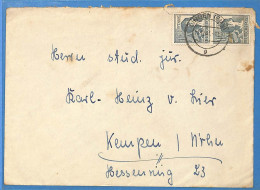 Herrn stud. jur.
Karl-Heinz v. Lier
Kempen / Nrhn
Hessenring 23